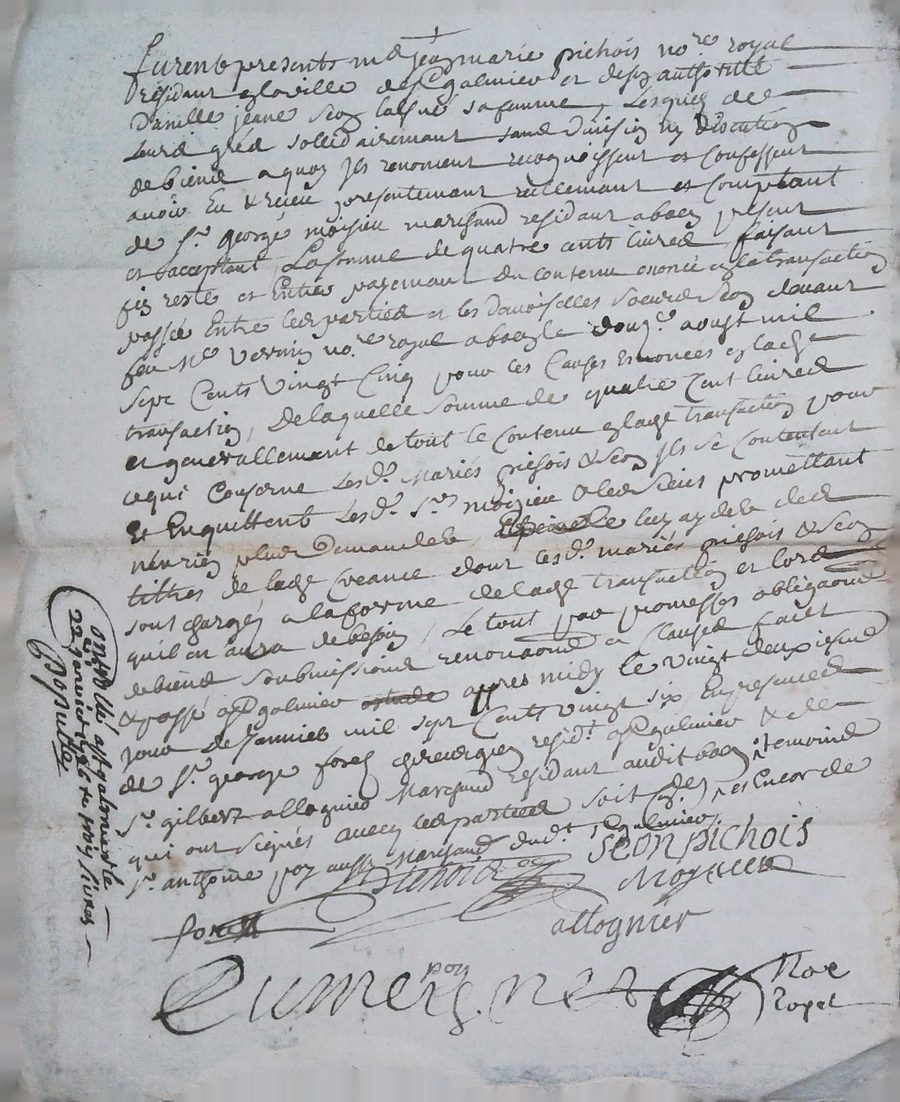 furent presents me jean marie pichois nore royal
residant en la ville de St galmier et de son authoritté
damlle jeanne seon lalsné sa femme, lesquels de
leurs gréd sollidairemant sans division ny discution
de biens a quoy ils renoncent recognoissent et confessent
avoir eu & receu presentemant reellemant et comptant
de Sr george moisieu marchand residant a boen present
et acceptant, la somme de quatre cents livres faisant
fin reste et entier payemant du contenu enoncé en la transaction
passée entre les parties et les damoiselles soeurs seon devant
feu Me verrin nore royal a boen le aoust mil
sept cents vingt cinq pour les causes enoncées en lade
transaction, de laquelle somme de quatre cent livres
et generallemant de tout le contenu en lade transaction pour
ce qui conserne lesds mariés pichois & seon ils se contentent
et enquittent lesd. Sr moizieu & les siens promettant
n'en rien plus demander, luy ayder des
titres de lade creance dont lesds mariés pichois & seon
sont chargés a la forme de lade transaction et lors
qu'il en aura de besoin, le tout par promesses obligaons
de biens soubmissions renonaons et clauses fait
& passé a St galmier apres midy le vingt deuxiesme
jour de janvier mil sept cents vingt six, en presence
de Sr george forest chirurgien residt a St galmier & de
Sr gilbert allognier marchand residant audit boen temoins
qui ont signés avecq les parties soit des pnts encor de
Sr anthoine poy aussy marchand dudt St galmier.
Pichois seon pichois
Moyzieu
forest
allognier
poy
nore
royal
controllé a St galmier le
22 janvier 1726 re trois livres